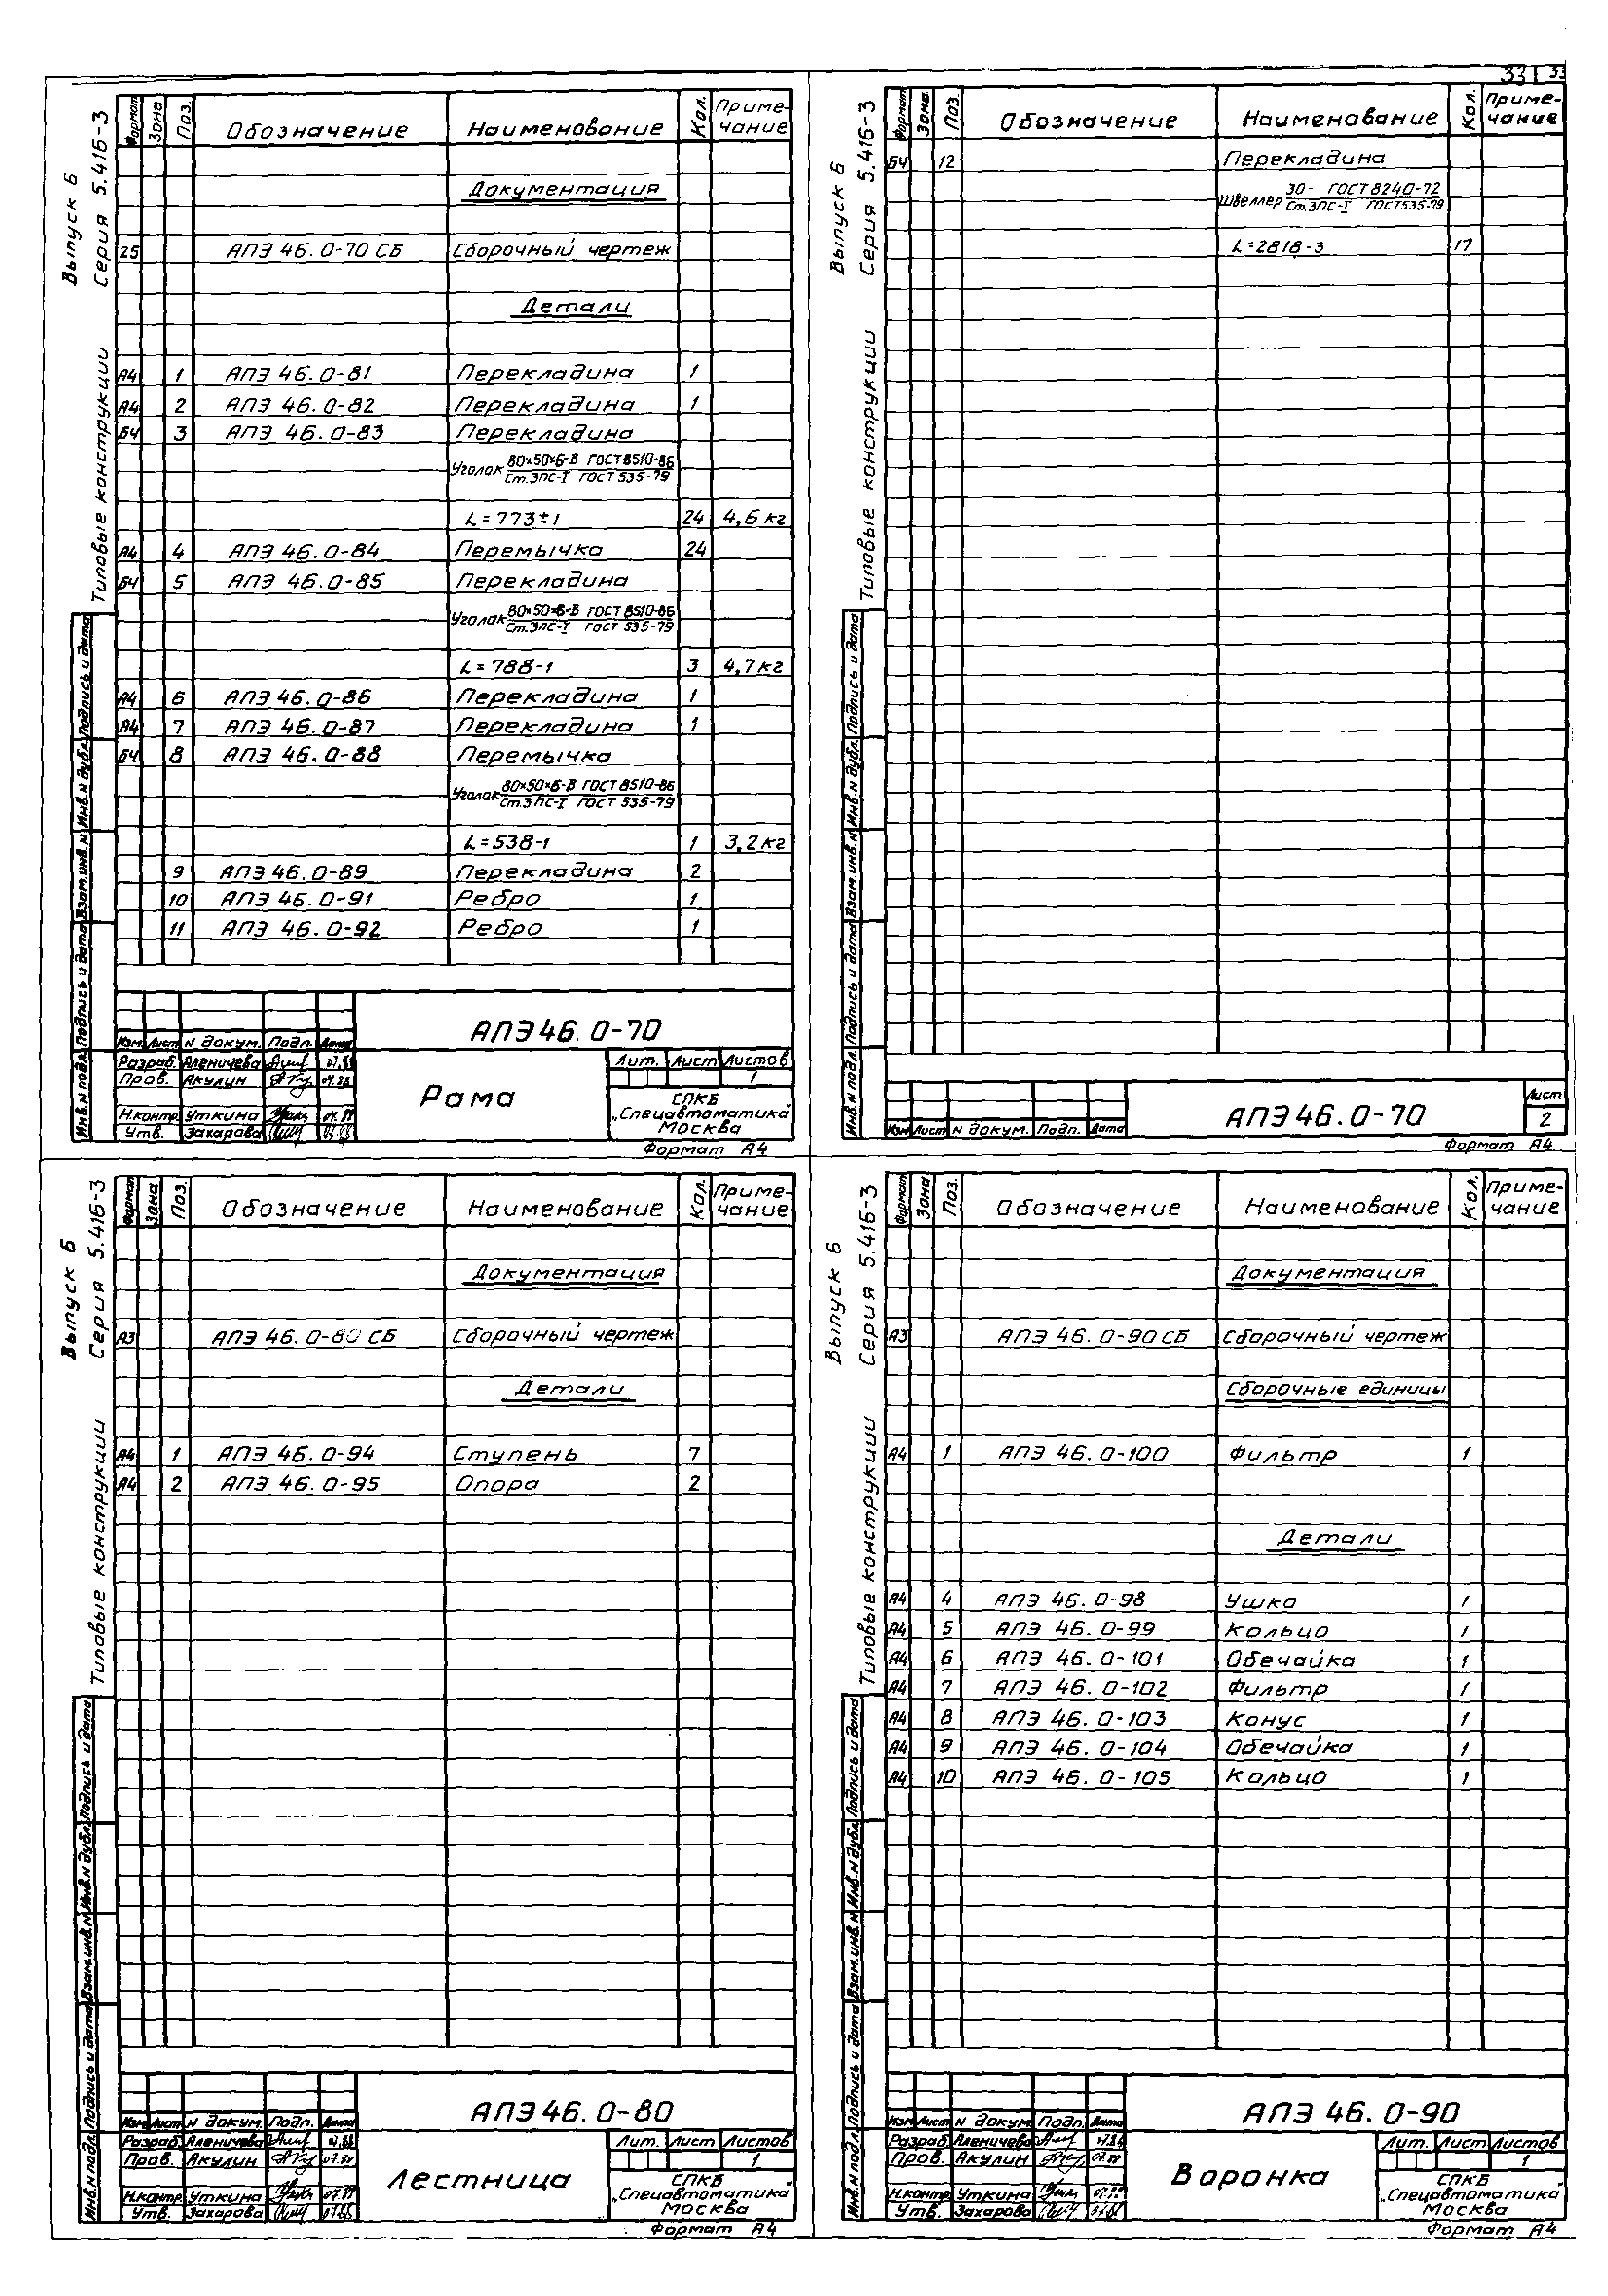 33
Выпуск 6
Серия 5.416-3
Типовые конструкции
Формат Зона Поз. Обозначение Наименование Кол. Приме-
чание
Документация
25 АПЭ 46.0-70 СБ Сборочный чертеж
Детали
А4 1 АПЭ 46.0-81 Перекладина 1
А4 2 АПЭ 46.0-82 Перекладина 1
БЧ 3 АПЭ 46.0-83 Перекладина
Уголок 80×50×6-В ГОСТ 8510-86
Ст.3ПС-I ГОСТ 535-79
L=773±1 24 4,6 кг
А4 4 АПЭ 46.0-84 Перемычка 24
БЧ 5 АПЭ 46.0-85 Перекладина
Уголок 80×50×6-В ГОСТ 8510-86
Ст.3ПС-I ГОСТ 535-79
L=788-1 3 4,7 кг
А4 6 АПЭ 46.0-86 Перекладина 1
А4 7 АПЭ 46.0-87 Перекладина 1
БЧ 8 АПЭ 46.0-88 Перемычка
Уголок 80×50×6-В ГОСТ 8510-86
Ст.3ПС-I ГОСТ 535-79
L=538-1 1 3,2 кг
9 АПЭ 46.0-89 Перекладина 2
10 АПЭ 46.0-91 Ребро 1
11 АПЭ 46.0-92 Ребро 1
Инв.N подл. Подпись и дата Взам.инв.N Инв.N дубл. Подпись и дата
АПЭ 46.0-70
Изм. Лист N докум. Подп. Дата
Разраб. Аленичева 07.88
Пров. Акулин 07.88
Н.контр. Уткина 07.88
Утв. Захарова 07.88
Рама
Лит. Лист Листов
1
СПКБ
„Спецавтоматика"
Москва
Формат А4
Выпуск 6
Серия 5.416-3
Типовые конструкции
Формат Зона Поз. Обозначение Наименование Кол. Приме-
чание
БЧ 12 Перекладина
Швеллер 30- ГОСТ 8240-72
Ст.3ПС-I ГОСТ 535-79
L=2818-3 17
Инв.N подл. Подпись и дата Взам.инв.N Инв.N дубл. Подпись и дата
Изм Лист N докум. Подп. Дата
АПЭ 46.0-70
Лист
2
Формат А4
Выпуск 6
Серия 5.416-3
Типовые конструкции
Формат Зона Поз. Обозначение Наименование Кол. Приме-
чание
Документация
А3 АПЭ 46.0-80 СБ Сборочный чертеж
Детали
А4 1 АПЭ 46.0-94 Ступень 7
А4 2 АПЭ 46.0-95 Опора 2
Инв.N подл. Подпись и дата Взам.инв.N Инв.N дубл. Подпись и дата
АПЭ 46.0-80
Изм Лист N докум. Подп. Дата
Разраб. Аленичева 07.88
Пров. Акулин 07.88
Н.контр. Уткина 07.88
Утв. Захарова 07.88
Лестница
Лит. Лист Листов
1
СПКБ
„Спецавтоматика"
Москва
Формат А4
Выпуск 6
Серия 5.416-3
Типовые конструкции
Формат Зона Поз. Обозначение Наименование Кол. Приме-
чание
Документация
А3 АПЭ 46.0-90 СБ Сборочный чертеж
Сборочные единицы
А4 1 АПЭ 46.0-100 Фильтр 1
Детали
А4 4 АПЭ 46.0-98 Ушко 1
А4 5 АПЭ 46.0-99 Кольцо 1
А4 6 АПЭ 46.0-101 Обечайка 1
А4 7 АПЭ 46.0-102 Фильтр 1
А4 8 АПЭ 46.0-103 Конус 1
А4 9 АПЭ 46.0-104 Обечайка 1
А4 10 АПЭ 46.0-105 Кольцо 1
Инв.N подл. Подпись и дата Взам.инв.N Инв.N дубл. Подпись и дата
АПЭ 46.0-90
Изм Лист N докум. Подп. Дата
Разраб. Аленичева 07.88
Пров. Акулин 07.88
Н.контр. Уткина 07.88
Утв. Захарова 07.88
Воронка
Лит. Лист Листов
1
СПКБ
„Спецавтоматика"
Москва
Формат А4